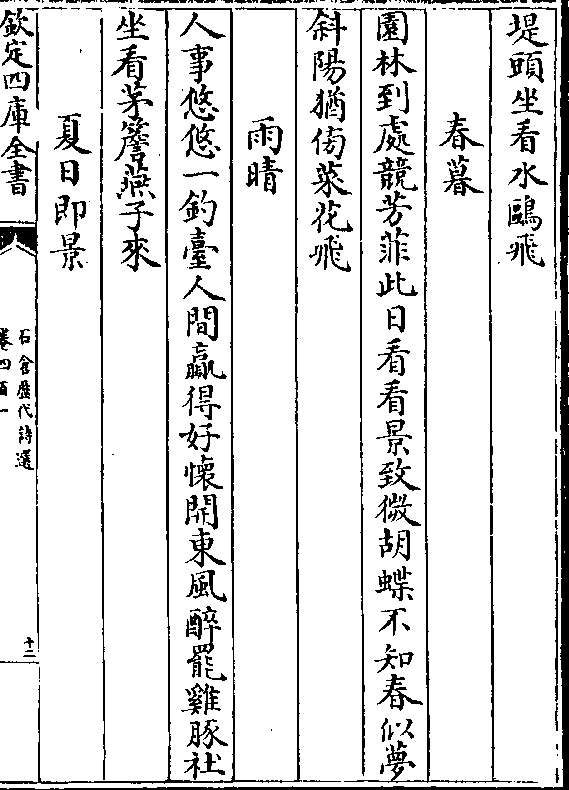 堤頭坐看水鷗飛
春暮
園林到處競芳菲此日看看景致微胡蝶不知春似夢
斜陽猶傍菜花飛
雨晴
人事悠悠一釣臺人間贏得好懷開東風醉罷雞豚社
坐看茅簷燕子來
夏日即景
欽定四庫全書
石倉歷代詩選
卷四百一
十二